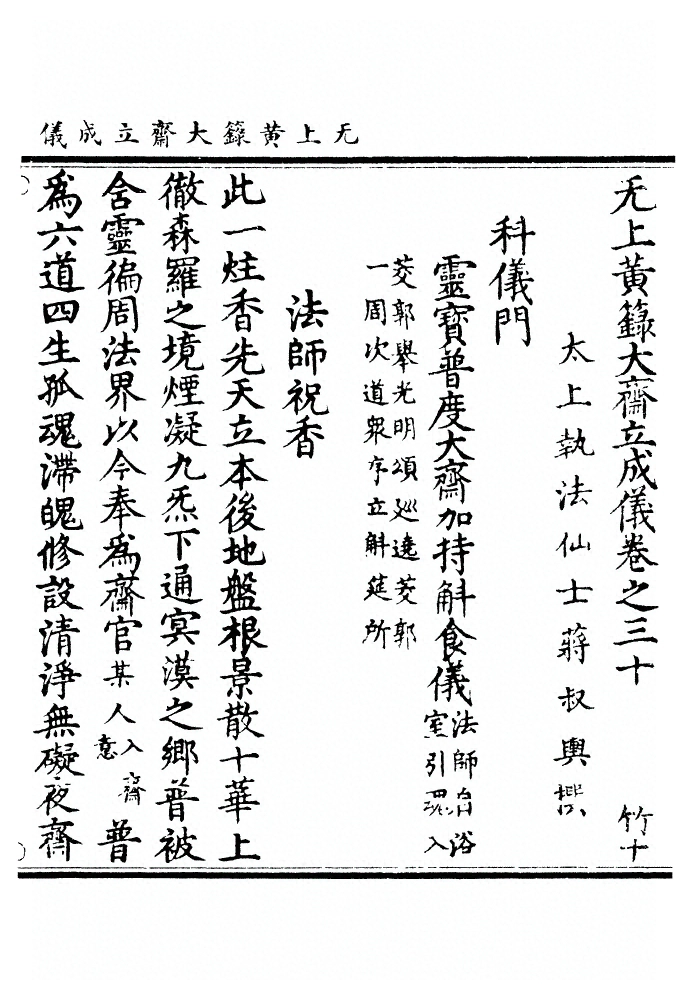 无上黄籙大齋立成儀
无上黄籙大齋立成儀卷之三十 竹十
太上執法仙士蔣叔輿撰
科儀門
靈寶普度大齋加持斛食儀 法師自浴室引魂入
茭郭舉光明頌巡遶茭郭
一周次道衆序立斛筵所
法師祝香
此一炷香先天立本後地盤根景散十華上
徹森羅之境煙凝九炁下通冥漠之鄉普被
含靈徧周法界以今奉爲齋官某人入齋意普
爲六道四生孤魂滯魄修設清淨無礙夜齋